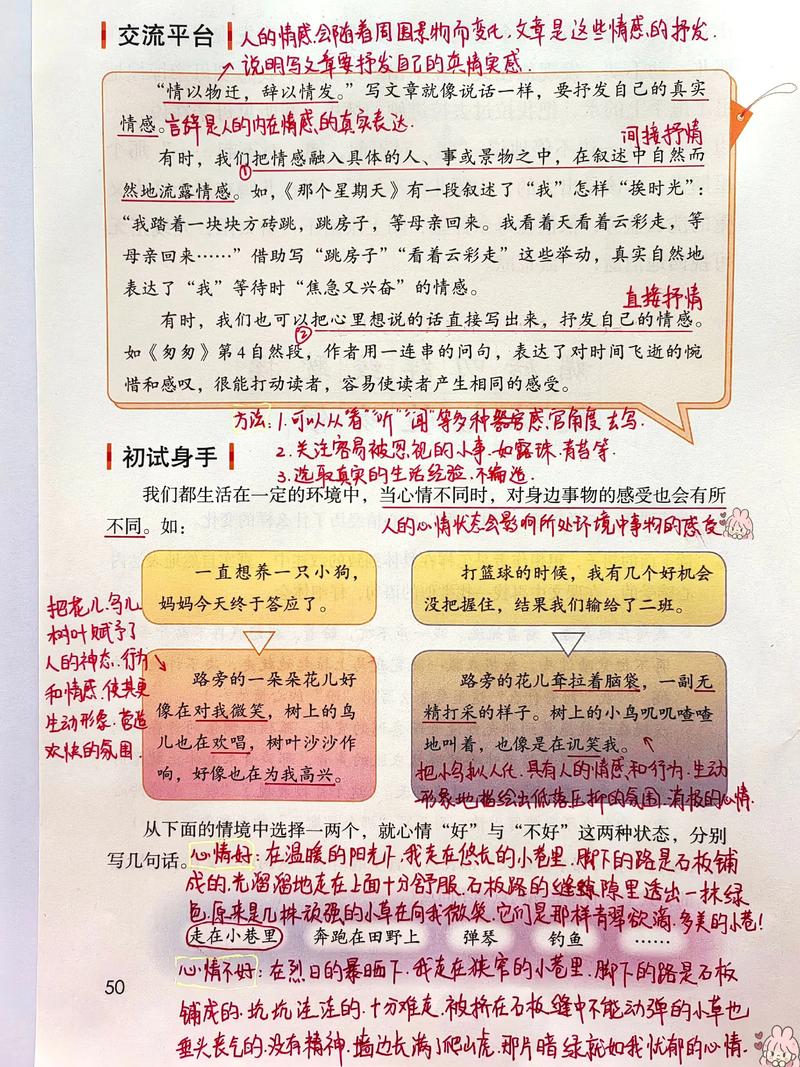 交流平台
人的情感会随着周围景物而变化，文章是这些情感的抒发．
↗说明写文章要抒发自己的真情实感．
“情以物迁，辞以情发。”写文章就像说话一样，要抒发自己的真实
情感。言辞是人的内在情感的真实表达．
间接抒情
有时，我们把情感融入具体的人、事或景物之中，在叙述中自然而
①
然地流露情感。如，《那个星期天》有一段叙述了“我”怎样“挨时光”：
“我踏着一块块方砖跳，跳房子，等母亲回来。我看着天看着云彩走，等
母亲回来……”借助写“跳房子”“看着云彩走”这些举动，真实自然地
表达了“我”等待时“焦急又兴奋”的情感。
直接抒情
有时，我们也可以把心里想说的话直接写出来，抒发自己的情感。
②
如《匆匆》第4自然段，作者用一连串的问句，表达了对时间飞逝的惋
惜和感叹，很能打动读者，容易使读者产生相同的感受。
方法：1.可以从“看”“听”“闻”等多种感官角度去写．
2.关注容易被忽视的小事．如露珠．青苔等．
3.选取真实的生活经验．不编造．
初试身手
我们都生活在一定的环境中，当心情不同时，对身边事物的感受也会有所
不同。如：
人的心情状态会影响所处环境中事物的感受
一直想养一只小狗，
妈妈今天终于答应了。
打篮球的时候，我有几个好机会
没把握住，结果我们输给了二班。
把花儿．鸟儿
树叶赋予了
人的神态．行为
和情感．使其更
生动形象．营造
欢快的氛围．
路旁的一朵朵花儿好
像在对我微笑，树上的鸟
儿也在欢唱，树叶沙沙作
响，好像也在为我高兴。
路旁的花儿耷拉着脑袋，一副无
精打采的样子。树上的小鸟叽叽喳喳
地叫着，也像是在讥笑我。
把小鸟拟人化．具有人的情感和行为．生动
形象地描绘出低落压抑的氛围．消极的心情．
从下面的情境中选择一两个，就心情“好”与“不好”这两种状态，分别
写几句话。
心情好：在温暖的阳光下．我走在悠长的小巷里．脚下的路是石板铺
成的．光溜溜地走在上面十分舒服．石板路的缝隙里透出一抹绿
色．原来是几株顽强的小草在向我微笑．它们是那样青翠欲滴．多美的小巷！
走在小巷里 奔跑在田野上 弹琴 钓鱼 ……
心情不好：在烈日的暴晒下．我走在狭窄的小巷里．脚下的路是石板
50
铺成的．坑坑洼洼的．十分难走．被挤在石板缝中不能动弹的小草也
垂头丧气的．没有精神．墙边长满了爬山虎．那片暗绿就如我忧郁的心情．